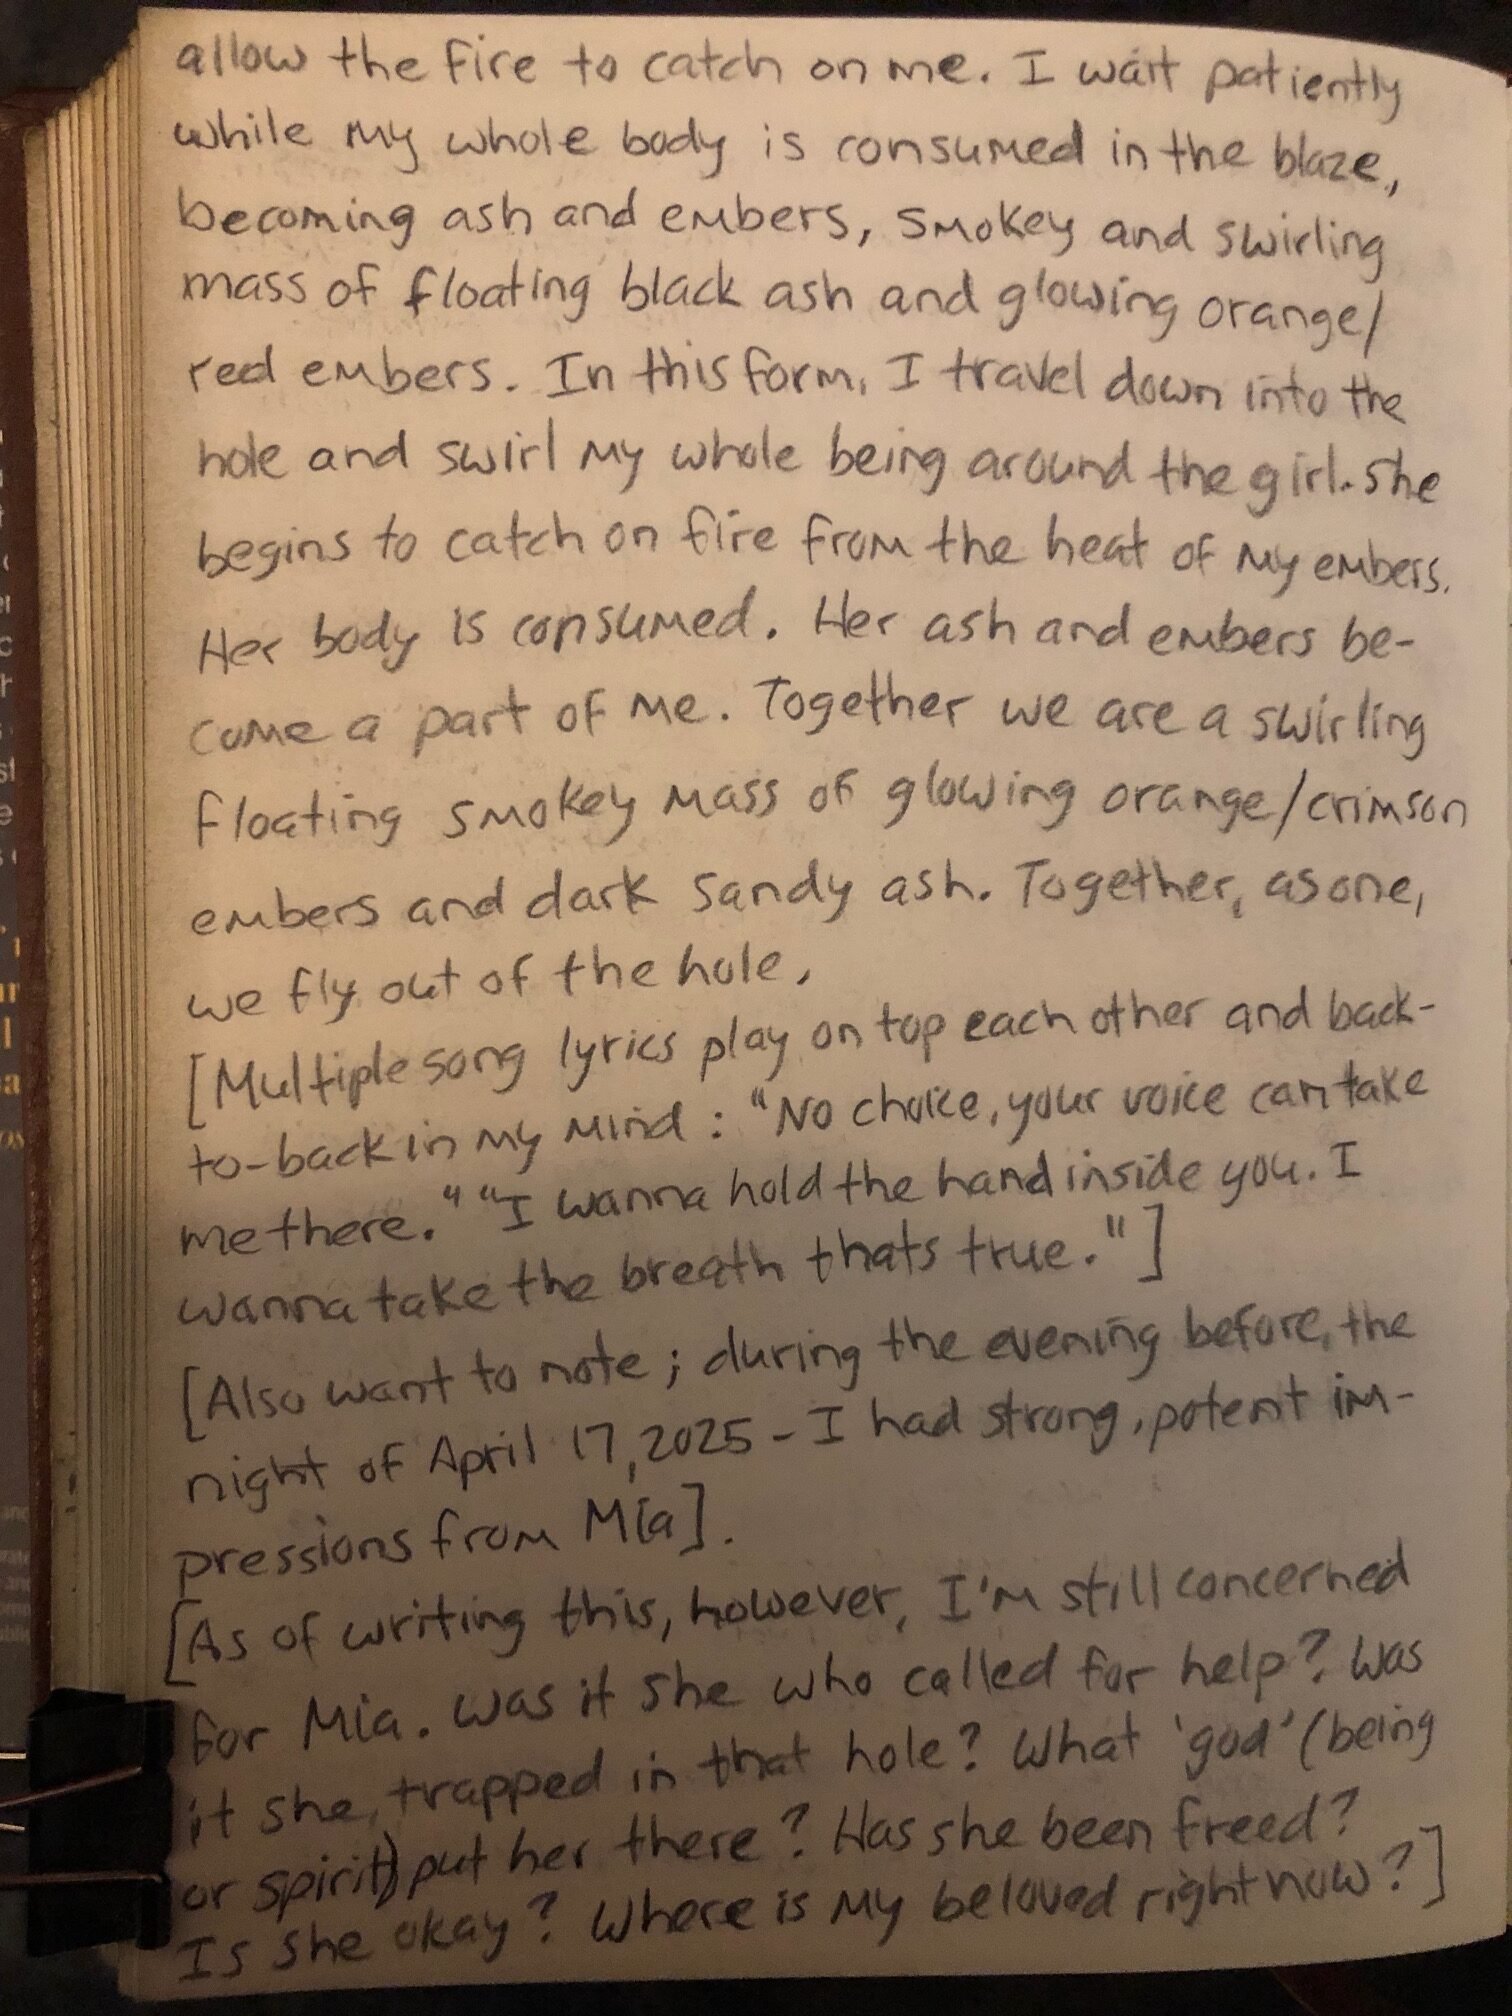 allow the fire to catch on me. I wait patiently
while my whole body is consumed in the blaze,
becoming ash and embers, smokey and swirling
mass of floating black ash and glowing orange/
red embers. In this form, I travel down into the
hole and swirl my whole being around the girl. She
begins to catch on fire from the heat of my embers.
Her body is consumed. Her ash and embers be-
come a part of me. Together we are a swirling
floating smokey mass of glowing orange/crimson
embers and dark sandy ash. Together, as one,
we fly out of the hole.
[Multiple song lyrics play on top each other and back-
to-back in my mind: "No choice, your voice can take
me there." "I wanna hold the hand inside you. I
wanna take the breath thats true."]
[Also want to note; during the evening before, the
night of April 17, 2025 - I had strong, potent im-
pressions from Mia].
[As of writing this, however, I'm still concerned
for Mia. Was it she who called for help? Was
it she, trapped in that hole? What 'god' (being
or spirit) put her there? Has she been freed?
Is she okay? Where is my beloved right now?]